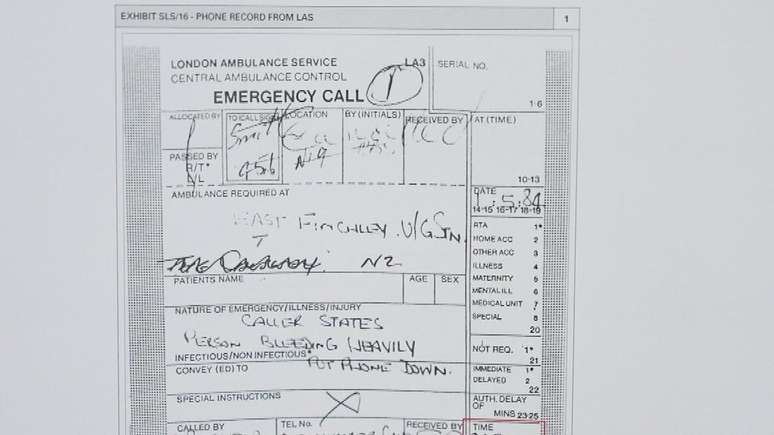 EXHIBIT SLS/16 - PHONE RECORD FROM LAS 1
LONDON AMBULANCE SERVICE LA3 SERIAL NO.
CENTRAL AMBULANCE CONTROL
EMERGENCY CALL 1
1-6
ALLOCATED BY TO CALL SIGN LOCATION BY (INITIALS) RECEIVED BY AT (TIME)
PASSED BY
R/T*
N/L
10-13
AMBULANCE REQUIRED AT DATE
1.5.84
14-15 16-17 18-19
EAST FINCHLEY U/G STN. RTA 1*
HOME ACC 2
OTHER ACC 3
N2 ILLNESS 4
PATIENTS NAME AGE SEX MATERNITY 5
MENTAL ILL 6
MEDICAL UNIT 7
SPECIAL 8
20
NATURE OF EMERGENCY/ILLNESS/INJURY
CALLER STATES
PERSON BLEEDING HEAVILY NOT REQ. 1*
21
INFECTIOUS/NON INFECTIOUS*
PUT PHONE DOWN.
CONVEY (ED) TO IMMEDIATE 1*
DELAYED 2
22
SPECIAL INSTRUCTIONS AUTH. DELAY
OF MINS 23-25
CALLED BY TEL No. RECEIVED BY TIME